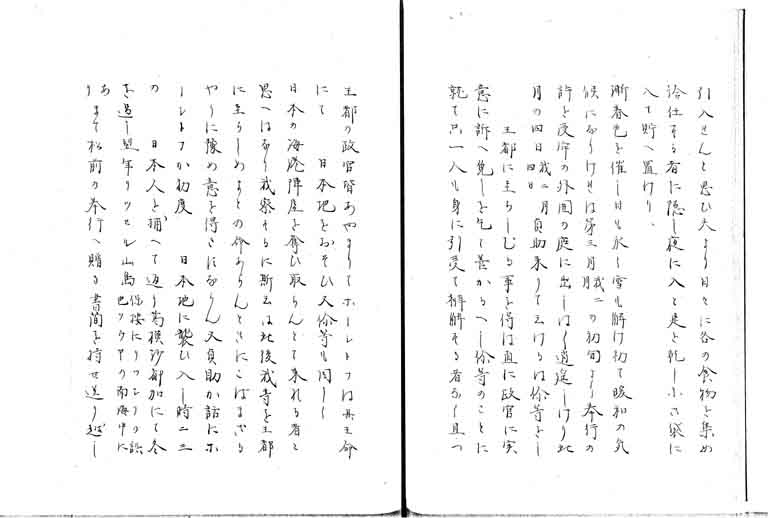 引入せんと思ひ夫より日々に各の食物を集め
給仕する者に隠し夜に入と是を乾し小さ袋に
入て貯へ置けり
漸春色を催し日も永く雪も解け初て暖和の気
候になりけれは第三月我二月の初旬より奉行の
許を受牢の外囲の庭に出しはしは逍遥しけり此
月の四日我二月四日貞助来りて云けるは你等をし
王都に至らしむる事を得は直に政官に実
意に訴へ免しを乞て善かるへし你等のことに
就て只一人も身に引受て弁解する者なく且つ
王都の政官皆あやまりてホーレトフは其主命
にて 日本地をおそひ又你等も同しく
日本の海港陣屋を奪ひ取らんとて来れる者と
思へはなり我察するに斯云は此後我等を王都
に至らしめよとの命あらんときにこはまさる
やうに豫め意を得さにならん又貞助か話にホ
ーレトフか初度 日本地に襲ひ入し時二三
の 日本人を捕へて返り葛模沙都加にて冬
を過し翌年リツセル山島
あ
りまて松前の奉行へ贈る書簡を持せ送り越し